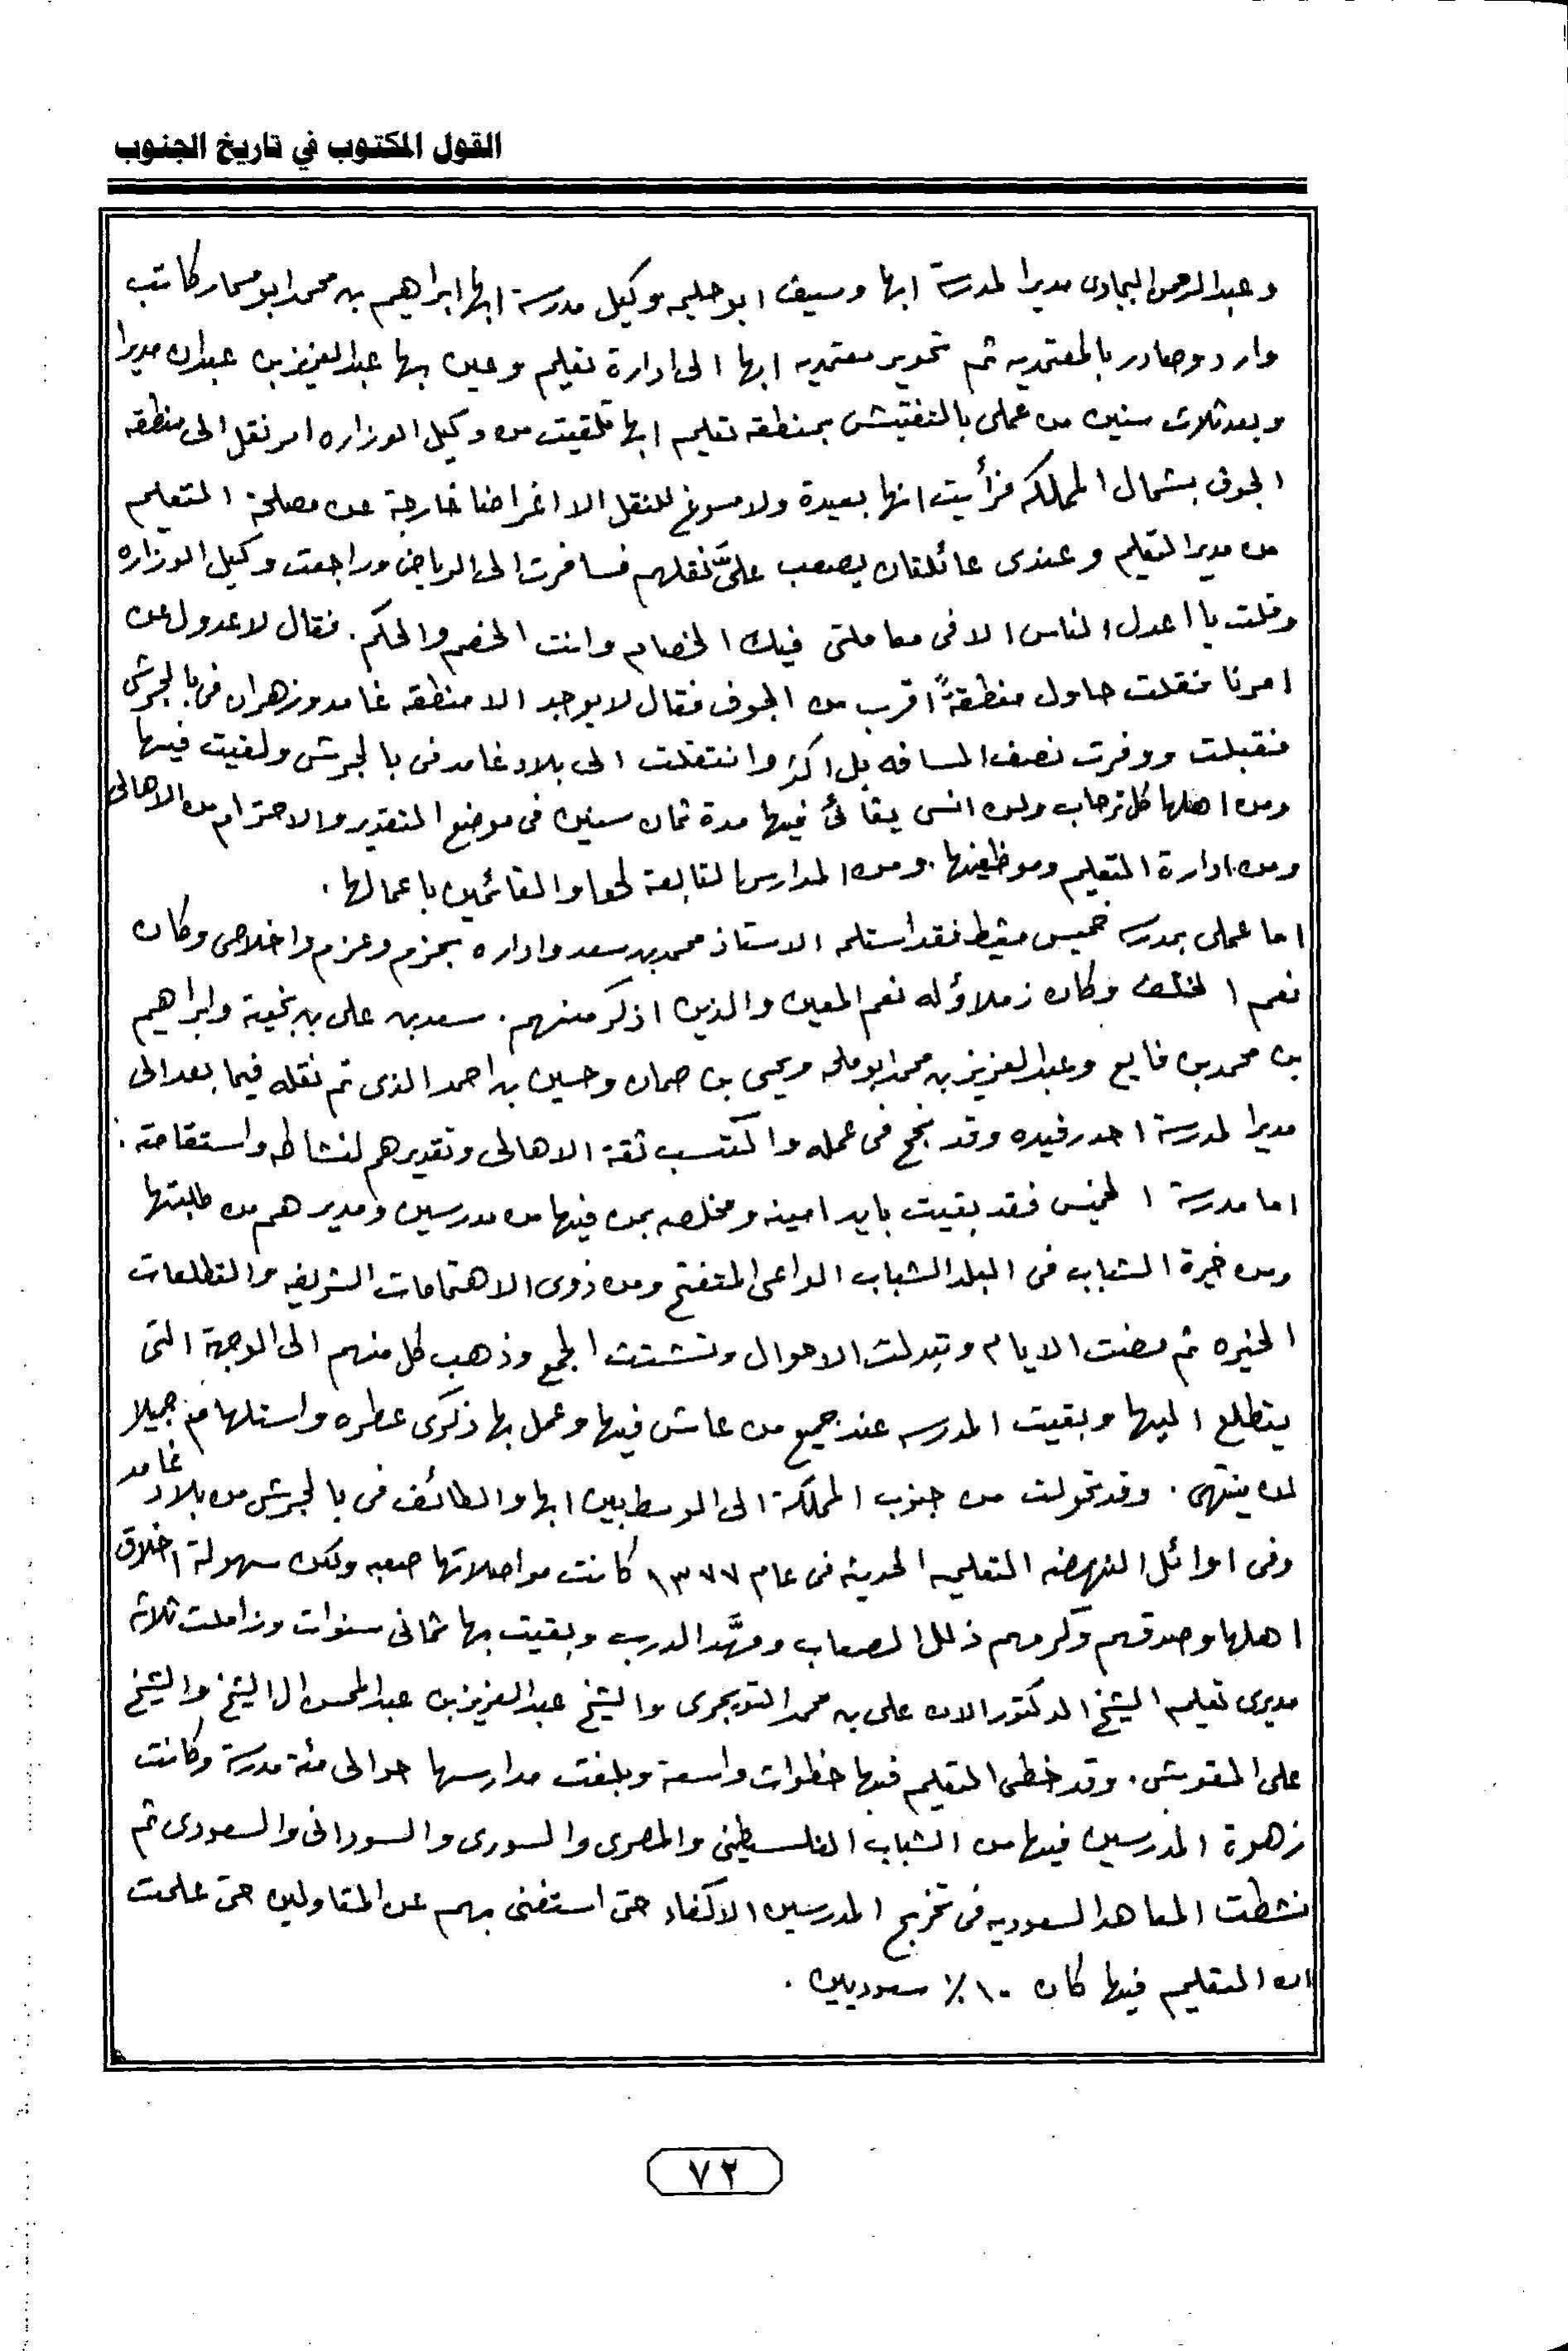 القول المكتوب في تاريخ الجنوب
وعبدالرحمن البجادى مديرا لمدرسة ابها وسيف ابو حليمه وكيل مدرسة ابها ابراهيم بن محمد ابو مسمار كاتب
وارد وصادر بالمعتمديه ثم تحوير معتمديه ابها الى ادارة تعليم وعين بها عبدالعزيز بن عبدان مديرا
وبعد ثلاث سنين من عملى بالتفتيش بمنطقه تعليم ابها تلقيت من وكيل الوزاره امر نقل الى منطقه
الجوف بشمال المملكه فرأيت انها بعيدة ولا مسوغ للنقل الا اغراضا خارجة عن مصلحة التعليم
من مدير التعليم وعندى عائلتان يصعب علىَّ نقلهم فسافرت الى الرياض وراجعت وكيل الوزاره
وقلت يا اعدل الناس الا فى معاملتى فيك الخصام وانت الخصم والحكم . فقال لا عدول عن
امرنا فقلت حاول منطقةً اقرب من الجوف فقال لا يوجد الا منطقه غامد وزهران فى بالجرشى
فقبلت ووفرت نصف المسافه بل اكثر وانتقلت الى بلاد غامد فى بالجرشى ولقيت فيها
ومن اهلها كل ترحاب ولن انسى بقائى فيها مدة ثمان سنين فى موضع التقدير والاحترام من الاهالى
ومن ادارة التعليم وموظفيها . ومن المدارس التابعة لها والقائمين باعمالها .
اما عملى بمدرسه خميس مشيط فقد استلمه الاستاذ محمد بن سعد واداره بحزم وعزم واخلاص وكان
نعم الخلف وكان زملاؤله نعم المعين والذين اذكر منهم . سعد بن على بن بخيتة وابراهيم
بن محمد بن فايع وعبدالعزيز بن محمد ابو ملحه ويحيى بن حمان وحسين بن احمد الذى تم نقله فيما بعد الى
مديرا لمدرسة احد رفيده وقد نجح فى عمله واكتسب ثقة الاهالى وتقديرهم لنشاطه واستقامته .
اما مدرسة الخميس فقد بقيت بايد امينه ومخلصه بمن فيها من مدرسين ومديرهم من طلبتها
ومن خيرة الشباب فى البلد الشباب الواعى المتفتح ومن ذوى الاهتمامات الشريفه والتطلعات
الخيره ثم مضت الايام وتبدلت الاحوال وتشتت الجمع وذهب كل منهم الى الوجهة التى
يتطلع اليها وبقيت المدرسه عند جميع من عاش فيها وعمل بها ذكرى عطره واستلهام جميلا
لن ينتهى . وقد تحولت من جنوب المملكة الى الوسط بين ابها والطائف فى بالجرشى من بلاد غامد
وفى اوائل النهضه التعليميه الحديثه فى عام ١٣٧٧ كانت مواصلاتها صعبه ولكن سهولة اخلاق
اهلها وصدقهم وكرمهم ذلل الصعاب ومهَّد الدرب وبقيت بها ثمانى سنوات وزاملت ثلاثه
مديرى تعليم الشيخ الدكتور الان على بن محمد التويجرى والشيخ عبدالعزيز بن عبدالمحسن ال الشيخ والشيخ
على المقوشى . وقد خطى التعليم فيها خطوات واسعة وبلغت مدارسها حوالى مئة مدرسة وكانت
زهوة المدرسين فيها من الشباب الفلسطينى والمصرى والسورى والسودانى والسعودى ثم
نشطت المعاهد السعوديه فى تخريج المدرسين الاكفاء حتى استغنى بهم عن المقاولين حتى علمت
ان التعليم فيها كان ١٠٠٪ سعوديين .
٧٢